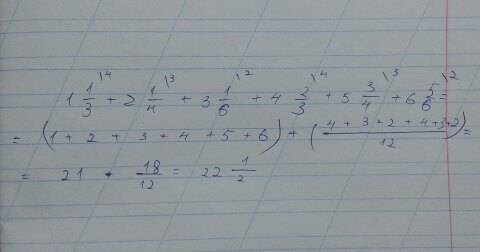 1 1/3 \4 + 2 1/4 \3 + 3 1/6 \2 + 4 3/3 \4 + 5 3/4 \3 + 6 5/6 \2 =
= (1 + 2 + 3 + 4 + 5 + 6) + (4 + 3 + 2 + 4 + 3 + 2 / 12) =
= 21 + 18/12 = 22 1/2